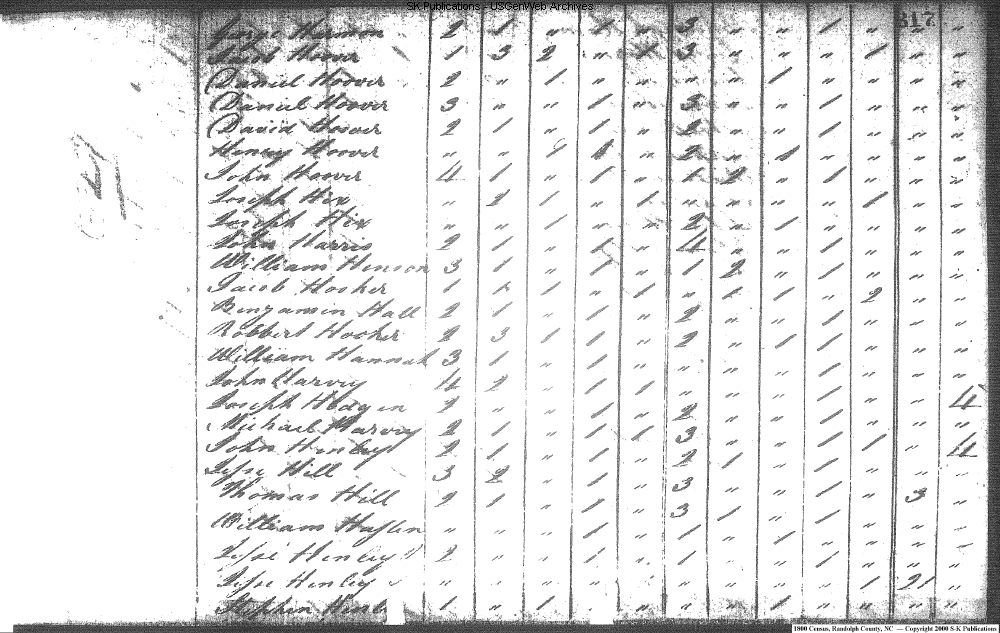 SK Publications - USGenWeb Archives
317
George Harmon 2 1 " 1 " 3 " " 1 " " "
Jacob Hoover 1 3 2 " 1 3 " " " 1 " "
Daniel Hoover 2 " 1 " " " " 1 " " " "
Daniel Hoover 3 " " 1 " 3 " " 1 " " "
David Hoover 2 1 " 1 " 2 " " 1 " " "
Henry Hoover " " 1 1 " 2 " 1 " " " "
John Hoover 4 1 " 1 " 1 2 " 1 " " "
Joseph Hix " 2 1 " 1 " " " " 1 " "
Joseph Hix " " 1 " " 2 " 1 " " " "
John Harris 2 1 " 1 " 4 " " 1 " " "
William Henson 3 1 " 1 " 1 2 " 1 " " "
Jacob Hooker 1 1 " 1 " 1 1 " 2 " "
Benjamin Hall 2 1 " 1 " 2 " " 1 " " "
Robbert Hooker 2 3 1 1 " 2 " 1 1 " " "
William Hannah 3 1 " 1 " " " " 1 " " "
John Harvey 4 2 " 1 1 " " " 1 " " "
Joseph Hodgen 2 " " 1 " 2 " " 1 " " 4
Michael Harvey 2 1 " 1 1 3 " " 1 " " "
John Henley 2 1 " 1 " 2 1 " 1 1 " 4
Jesse Hill 3 2 " 1 " 3 " " 1 " " "
Thomas Hill 2 1 " 1 " 3 " " 1 " 3 "
William " " " 1 " 1 " 1 " " " "
Jesse Henley 2 " " 1 " 1 " " 1 " " "
Jesse Henley " " " " " " " " " 1 21 "
Stephen 1 " 1 " " " " 1 " " " "
1800 Census, Randolph County, NC — Copyright 2000 S-K Publications